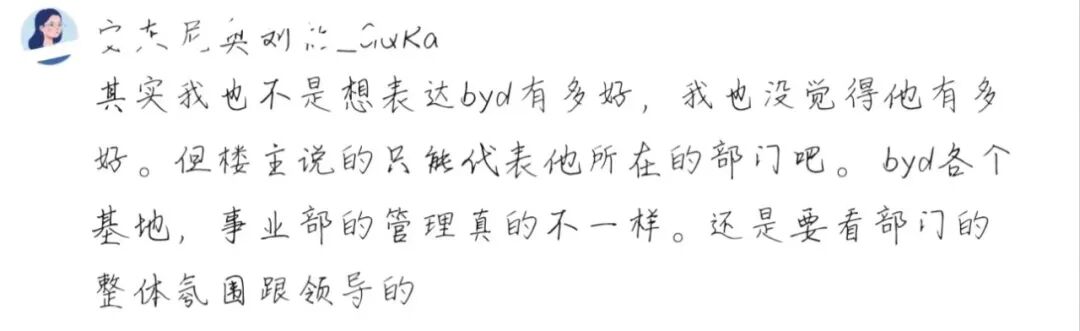 其实我也不是想表达byd有多好，我也没觉得他有多
好。但楼主说的只能代表他所在的部门吧。byd各个
基地，事业部的管理真的不一样。还是要看部门的
整体氛围跟领导的